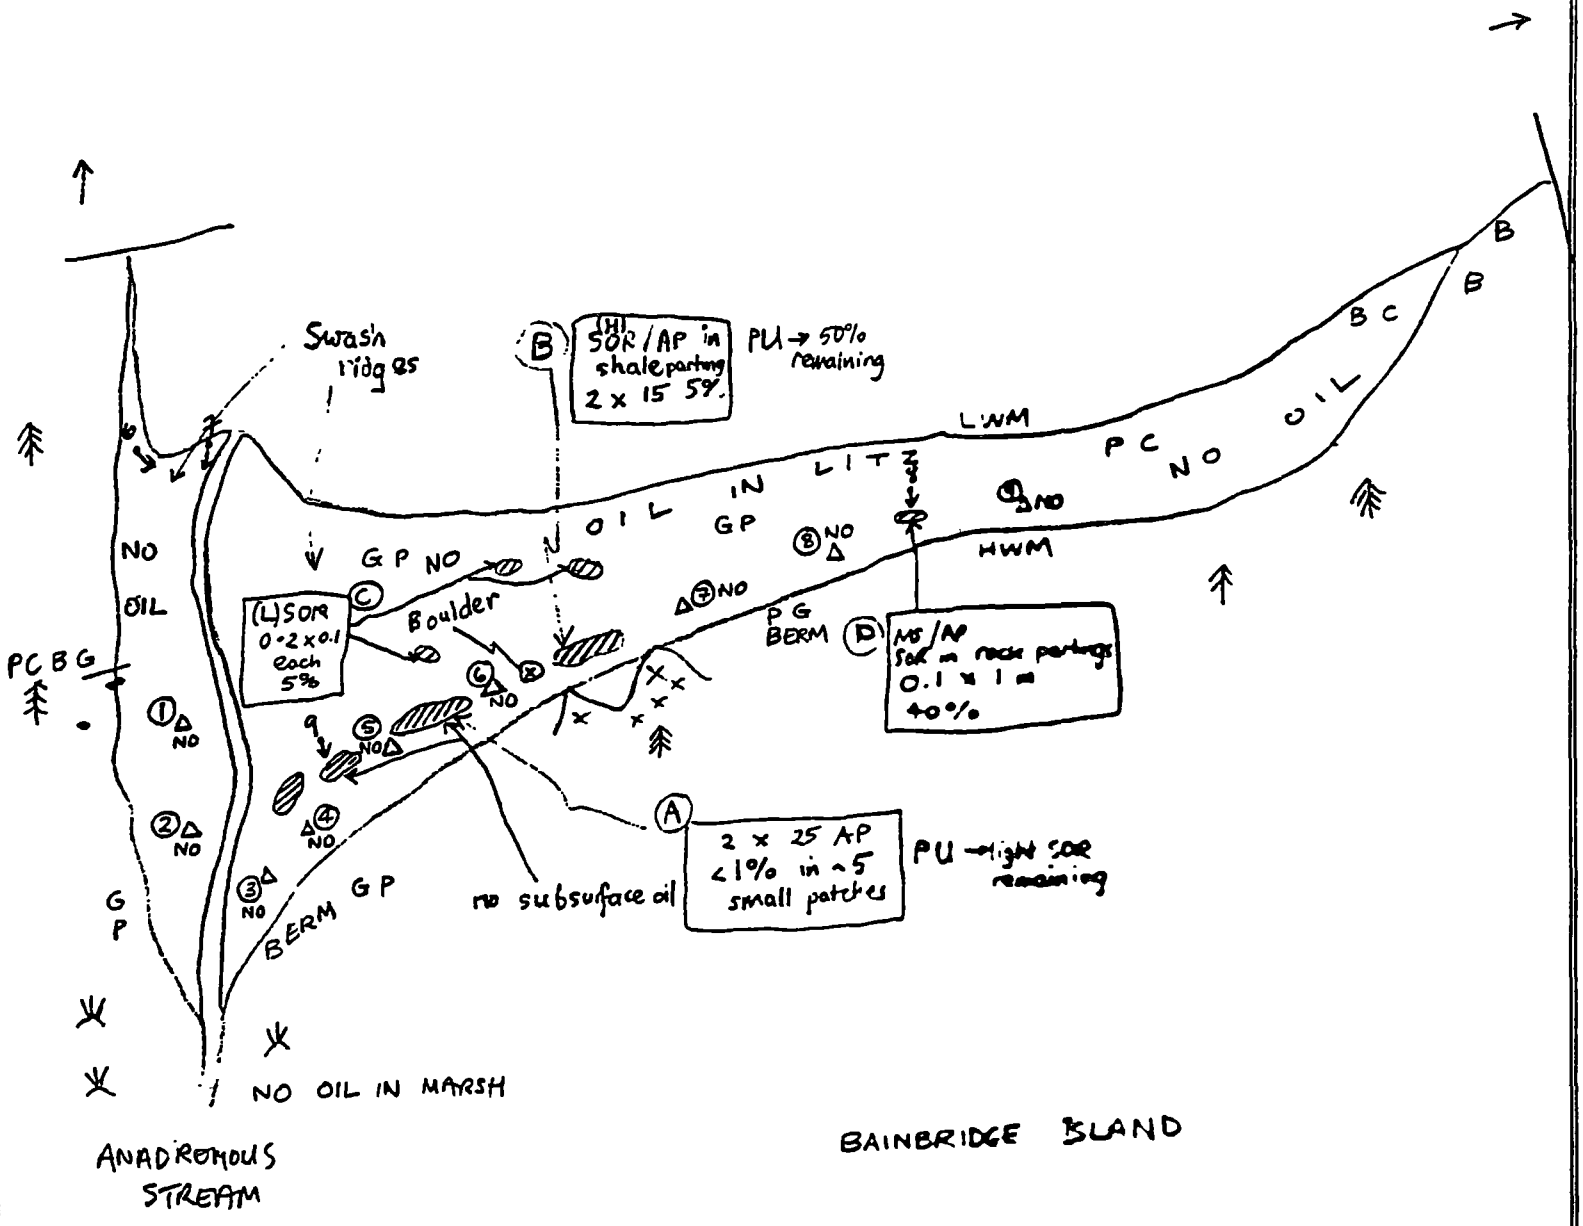 Swash
ridges
B
(H)
SOR/AP in
shale parting
2 x 15 5%
PU → 50%
remaining
LWM
B
B
B C
P C
NO OIL
NO OIL IN LITZ
GP
GP
NO
OIL
(L)SOR
0.2 x 0.1
each
5%
C
Boulder
9 NO
8 NO
HWM
7 NO
PG
BERM
D
MS/AP
SOR in rock partings
0.1 x 1 m
40%
PCBG
6
NO
x
1
NO
5
NO
9
2
NO
4
NO
3
NO
A
2 x 25 AP
<1% in ~5
small patches
PU → light SOR
remaining
no subsurface oil
G
P
BERM
GP
NO OIL IN MARSH
ANADROMOUS
STREAM
BAINBRIDGE ISLAND